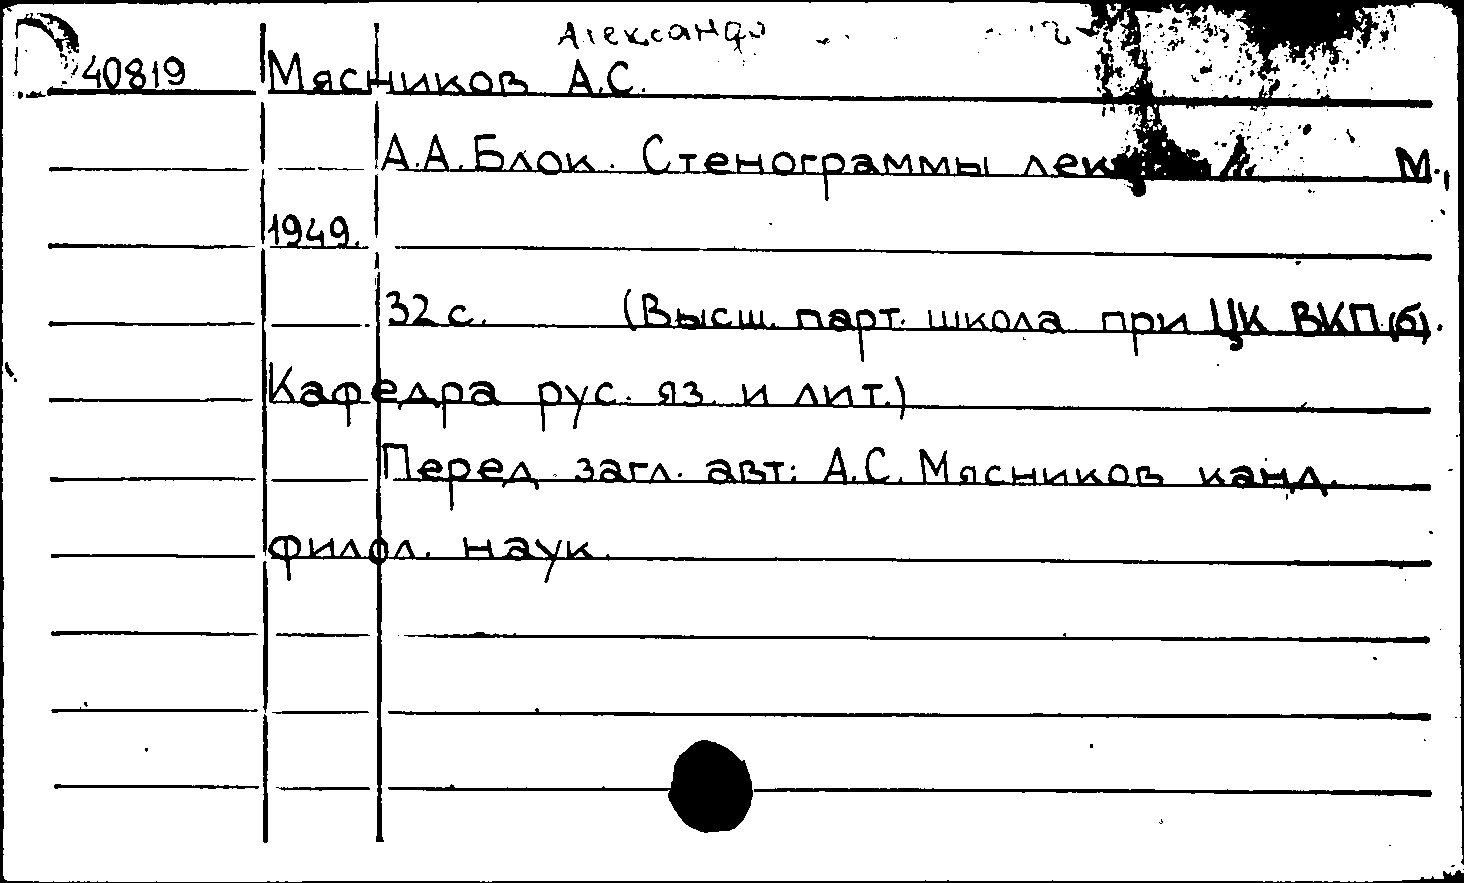 Александр
40819 Мясников А.С.
А.А. Блок. Стенограммы М.,
1949.
32 с. (Высш. парт. школа при ЦК ВКП(б).
Кафедра рус. яз. и лит.)
Перед загл. авт: А.С. Мясников канд.
филол. наук.